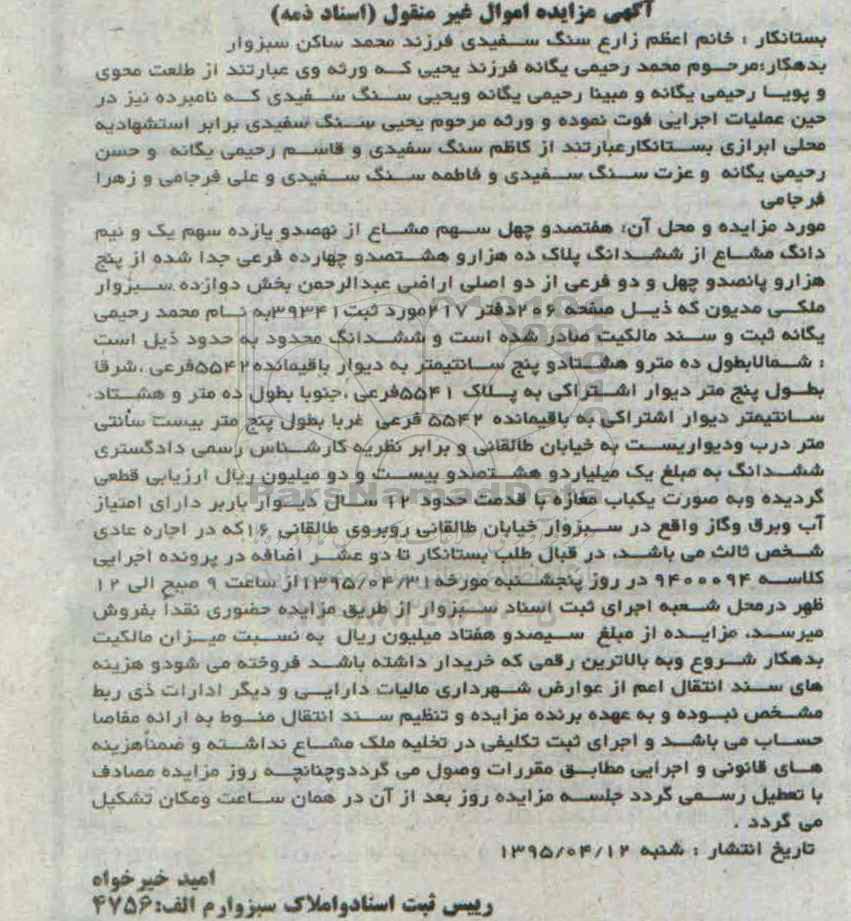 آگهی مزایده اموال غیر منقول (اسناد ذمه)
بستانکار : خانم اعظم زارع سنگ سفیدی فرزند محمد ساکن سبزوار
بدهکار:مرحوم محمد رحیمی یگانه فرزند یحیی که ورثه وی عبارتند از طلعت محوی
و پویا رحیمی یگانه و مبینا رحیمی یگانه ویحیی سنگ سفیدی که نامبرده نیز در
حین عملیات اجرایی فوت نموده و ورثه مرحوم یحیی سنگ سفیدی برابر استشهادیه
محلی ابرازی بستانکارعبارتند از کاظم سنگ سفیدی و قاسم رحیمی یگانه و حسن
رحیمی یگانه و عزت سنگ سفیدی و فاطمه سنگ سفیدی و علی فرجامی و زهرا
فرجامی
مورد مزایده و محل آن: هفتصدو چهل سهم مشاع از نهصدو یازده سهم یک و نیم
دانگ مشاع از ششدانگ پلاک ده هزارو هشتصدو چهارده فرعی جدا شده از پنج
هزارو پانصدو چهل و دو فرعی از دو اصلی اراضی عبدالرحمن بخش دوازده سبزوار
ملکی مدیون که ذیل صفحه ۲۰۶دفتر ۲۱۷مورد ثبت۳۹۳۴۱به نام محمد رحیمی
یگانه ثبت و سند مالکیت صادر شده است و ششدانگ محدود به حدود ذیل است
: شمالابطول ده مترو هشتادو پنج سانتیمتر به دیوار باقیمانده۵۵۴۲فرعی ،شرقا
بطول پنج متر دیوار اشتراکی به پلاک ۵۵۴۱فرعی ،جنوبا بطول ده متر و هشتاد
سانتیمتر دیوار اشتراکی به باقیمانده ۵۵۴۲ فرعی غربا بطول پنج متر بیست سانتی
متر درب ودیواریست به خیابان طالقانی و برابر نظریه کارشناس رسمی دادگستری
ششدانگ به مبلغ یک میلیاردو هشتصدو بیست و دو میلیون ریال ارزیابی قطعی
گردیده وبه صورت یکباب مغازه با قدمت حدود ۱۲ سال دیوار باربر دارای امتیاز
آب وبرق وگاز واقع در سبزوار خیابان طالقانی روبروی طالقانی ۱۶که در اجاره عادی
شخص ثالث می باشد، در قبال طلب بستانکار تا دو عشر اضافه در پرونده اجرایی
کلاسه ۹۴۰۰۰۹۴ در روز پنجشنبه مورخه۱۳۹۵/۰۴/۳۱از ساعت ۹ صبح الی ۱۲
ظهر درمحل شعبه اجرای ثبت اسناد سبزوار از طریق مزایده حضوری نقدا بفروش
میرسد، مزایده از مبلغ سیصدو هفتاد میلیون ریال به نسبت میزان مالکیت
بدهکار شروع وبه بالاترین رقمی که خریدار داشته باشد فروخته می شودو هزینه
های سند انتقال اعم از عوارض شهرداری مالیات دارایی و دیگر ادارات ذی ربط
مشخص نبوده و به عهده برنده مزایده و تنظیم سند انتقال منوط به ارائه مفاصا
حساب می باشد و اجرای ثبت تکلیفی در تخلیه ملک مشاع نداشته و ضمناًهزینه
های قانونی و اجرایی مطابق مقررات وصول می گرددوچنانچه روز مزایده مصادف
با تعطیل رسمی گردد جلسه مزایده روز بعد از آن در همان ساعت ومکان تشکیل
می گردد .
تاریخ انتشار : شنبه ۱۳۹۵/۰۴/۱۲
امید خیرخواه
رییس ثبت اسنادواملاک سبزوارم الف:۴۷۵۶
ParsNamadData